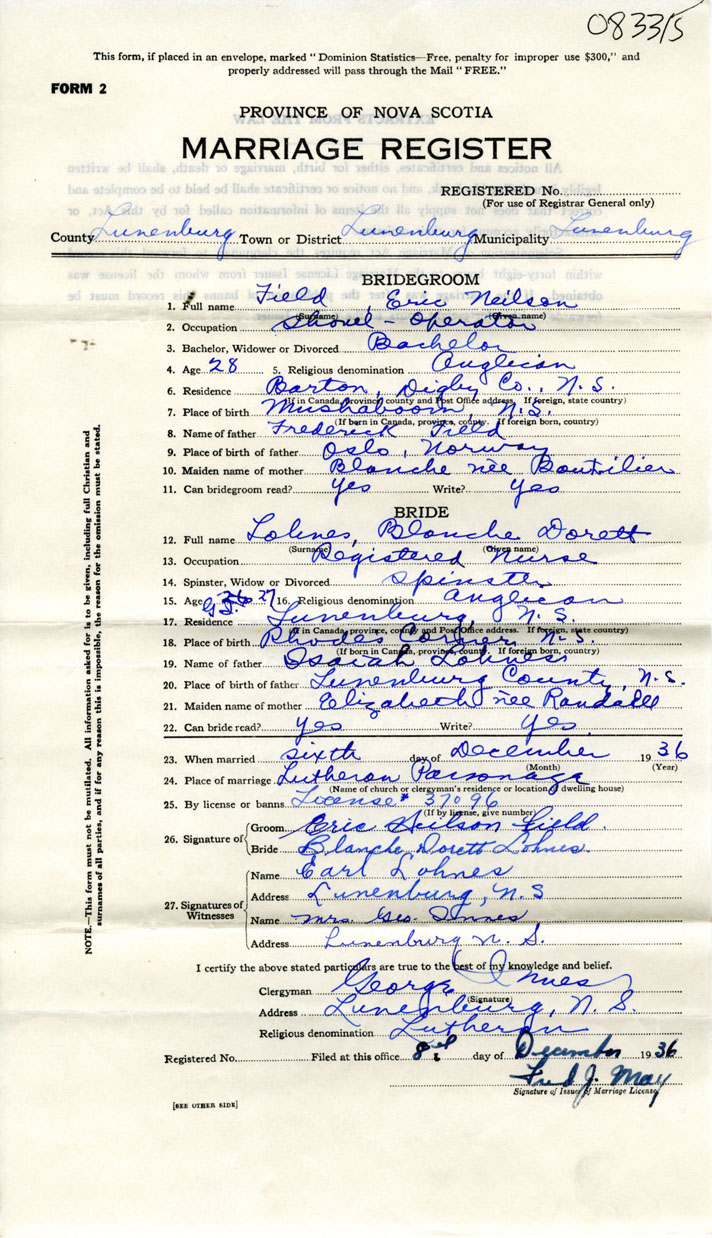 08335
This form, if placed in an envelope, marked "Dominion Statistics—Free, penalty for improper use $300," and
properly addressed will pass through the Mail "FREE."
FORM 2
PROVINCE OF NOVA SCOTIA
MARRIAGE REGISTER
REGISTERED No.
(For use of Registrar General only)
County Lunenburg Town or District Lunenburg Municipality Lunenburg
BRIDEGROOM
1. Full name Field, Eric Neilson
(Surname) (Given name)
2. Occupation Shovel - Operator
3. Bachelor, Widower or Divorced Bachelor
4. Age 28 5. Religious denomination Anglican
6. Residence Barton, Digby Co., N.S.
(If in Canada, province, county and Post Office address. If foreign, state country)
7. Place of birth Mushaboom, N.S.
(If born in Canada, province, county. If foreign born, country)
8. Name of father Frederick Field
9. Place of birth of father Oslo, Norway
10. Maiden name of mother Blanche née Boutilier
11. Can bridegroom read? yes Write? yes
BRIDE
12. Full name Lohnes, Blanche Dorett
(Surname) (Given name)
13. Occupation Registered Nurse
14. Spinster, Widow or Divorced Spinster
15. Age 26 27 16. Religious denomination Anglican
17. Residence Lunenburg, N.S.
(If in Canada, province, county and Post Office address. If foreign, state country)
18. Place of birth Rhodes Corner N.S.
(If born in Canada, province, county. If foreign born, country)
19. Name of father Isaiah Lohnes
20. Place of birth of father Lunenburg County, N.S.
21. Maiden name of mother Elizabeth née Randall
22. Can bride read? yes Write? yes.
23. When married sixth day of December 1936
(Month) (Year)
24. Place of marriage Lutheran Parsonage
(Name of church or clergyman's residence or location of dwelling house)
25. By license or banns License # 37096
(If by license, give number)
26. Signature of Groom Eric Neilson Field.
Bride Blanche Dorett Lohnes.
27. Signatures of Witnesses Name Earl Lohnes
Address Lunenburg, N.S
Name Mrs. Geo. Innes
Address Lunenburg N.S.
I certify the above stated particulars are true to the best of my knowledge and belief.
Clergyman George Innes
(Signature)
Address Lunenburg, N.S.
Religious denomination Lutheran
Registered No. Filed at this office 8th day of December 1936
Fred J. May
Signature of Issuer of Marriage License
[SEE OTHER SIDE]
NOTE.—This form must not be mutilated. All information asked for is to be given, including full Christian and
surnames of all parties, and if for any reason this is impossible, the reason for the omission must be stated.